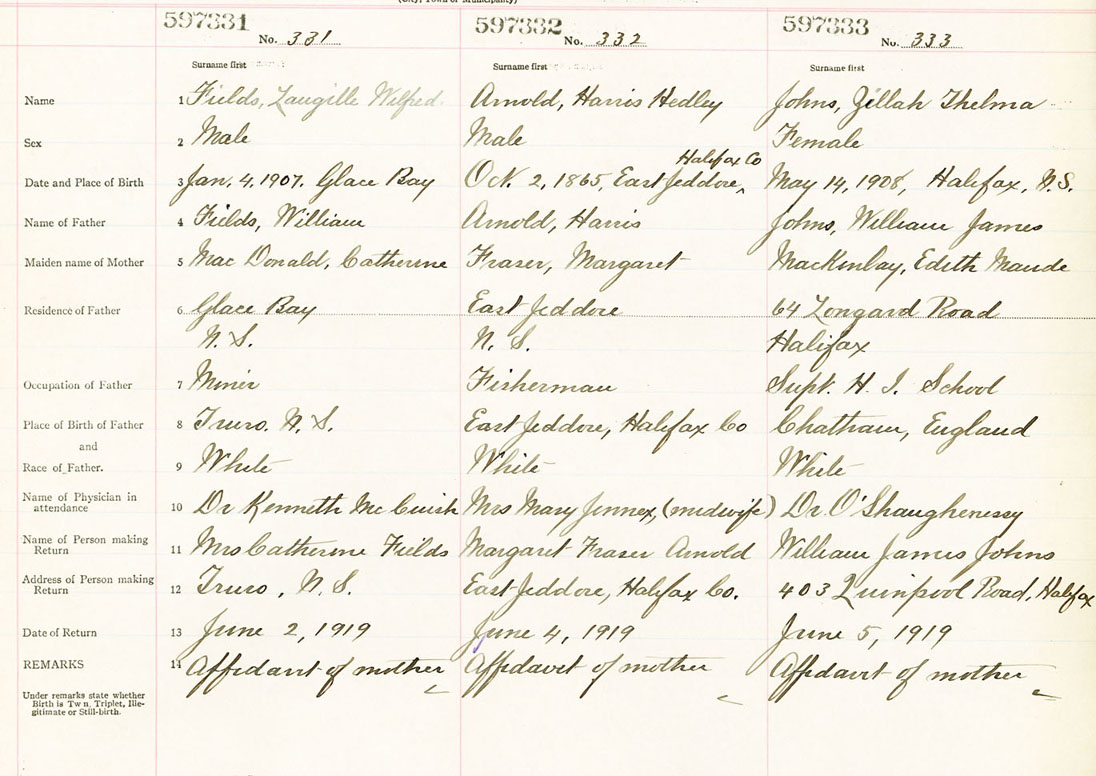 (City, Town or Municipality)
597331 597332 597333
No. 331 No. 332 No. 333
Surname first Surname first Surname first
Name 1 Fields, Langille Wilfred Arnold, Harris Hedley Johns, Zillah Thelma
Sex 2 Male Male Female
Halifax Co
Date and Place of Birth 3 Jan. 4, 1907. Glace Bay Oct. 2, 1865, East Jeddore, May 14, 1908, Halifax, N.S.
Name of Father 4 Fields, William Arnold, Harris Johns, William James
Maiden name of Mother 5 Mac Donald, Catherine Fraser, Margaret MacKinlay, Edith Maude
Residence of Father 6 Glace Bay East Jeddore 64 Longard Road
N. S. N. S. Halifax
Occupation of Father 7 Miner Fisherman Supt. H. I. School
Place of Birth of Father 8 Truro. N. S. East Jeddore, Halifax Co Chatham, England
and
Race of Father. 9 White White White
Name of Physician in
attendance 10 Dr Kenneth Mc Cuish Mrs Mary Jennex, (midwife) Dr. O'Shaughenessy
Name of Person making
Return 11 Mrs Catherine Fields Margaret Fraser Arnold William James Johns
Address of Person making
Return 12 Truro, N. S. East Jeddore, Halifax Co. 403 Quinpool Road, Halifax
Date of Return 13 June 2, 1919 June 4, 1919 June 5, 1919
REMARKS 14 Affidavit of mother Affidavit of mother Affidavit of mother
Under remarks state whether
Birth is Tw n, Triplet, Ille-
gitimate or Still-birth.